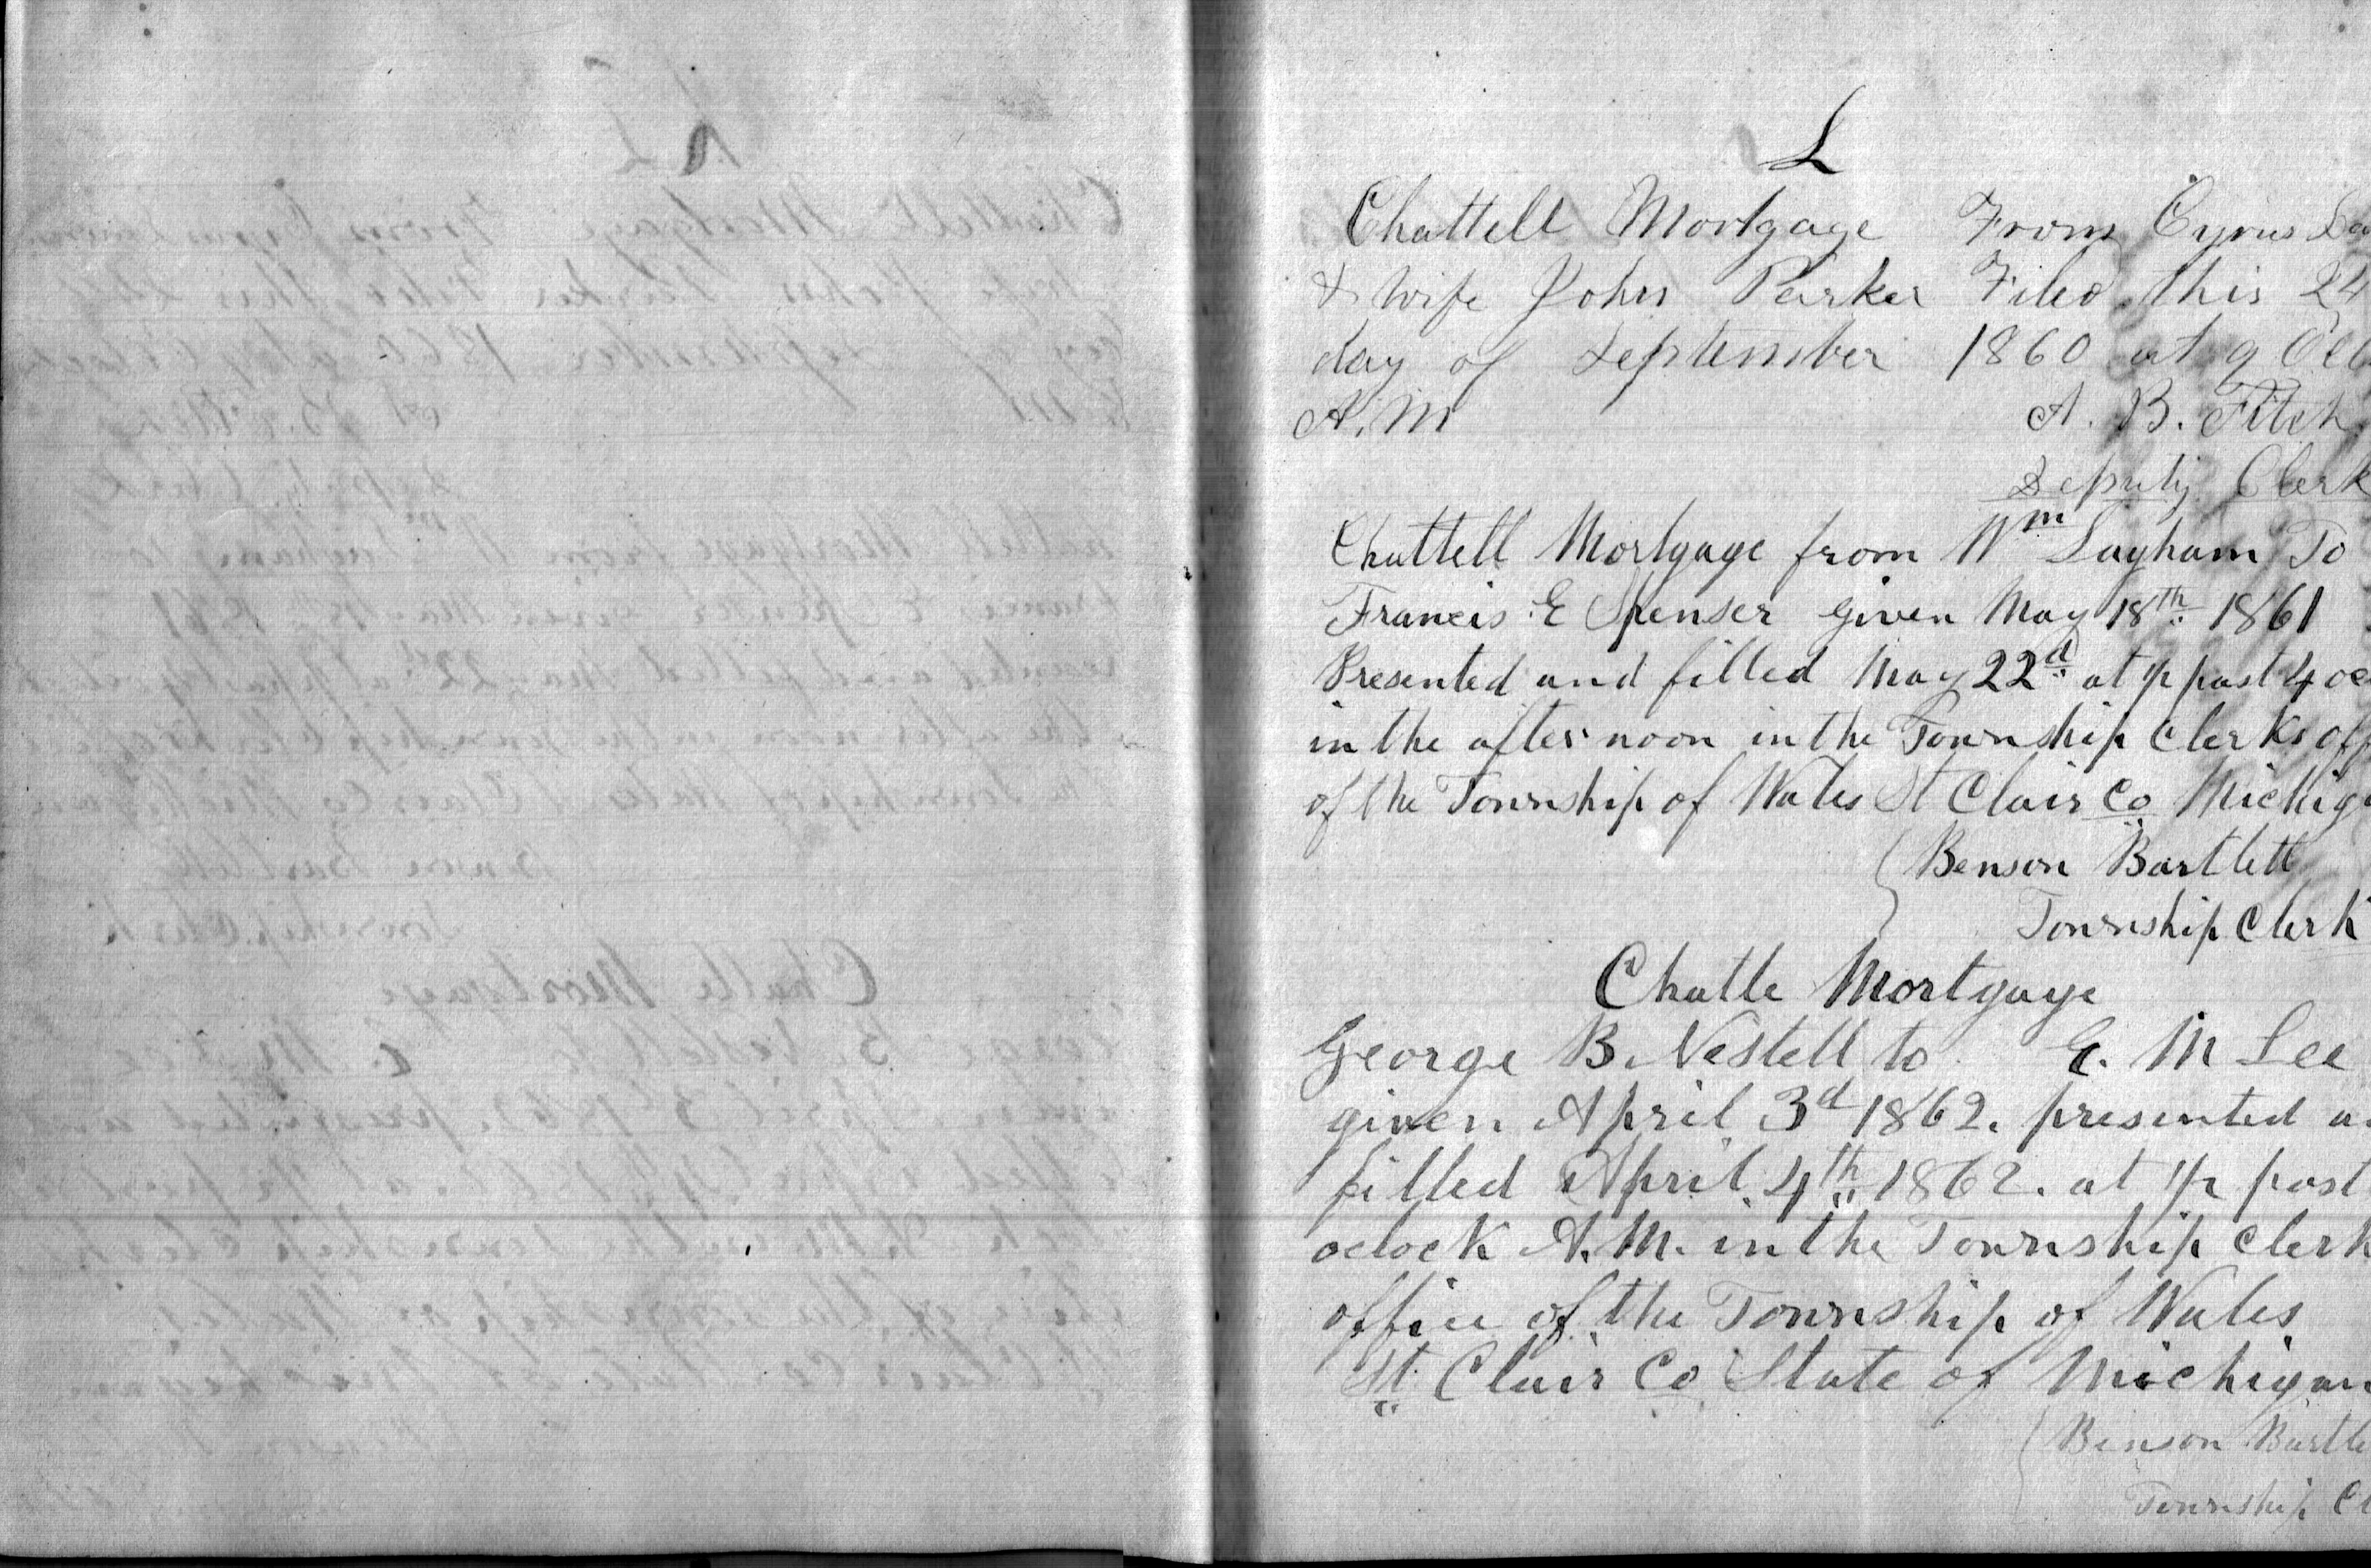 L
Chattell Mortgage From Cyrus
& wife John Parker Filed this 24
day of September 1860 at 9 Ocl
A.M A. B. Fitch
Deputy Clerk
Chattell Mortgage from Wm Layham To
Francis E Spenser given May 18th 1861
Presented and filled May 22d at ½ past 4 oc
in the after noon in the Township Clerks off
of the Township of Wales St Clair Co Michig
Benson Bartlett
Township Clerk
Chatle Mortgage
George B. Nestell to E. M Lee
given April 3d 1862. presented a
filled April 4th 1862. at ½ past
oclock A.M. in the Township Clerk
office of the Township of Wales
St Clair Co State of Michigan
Benson Bartle
Township Cl